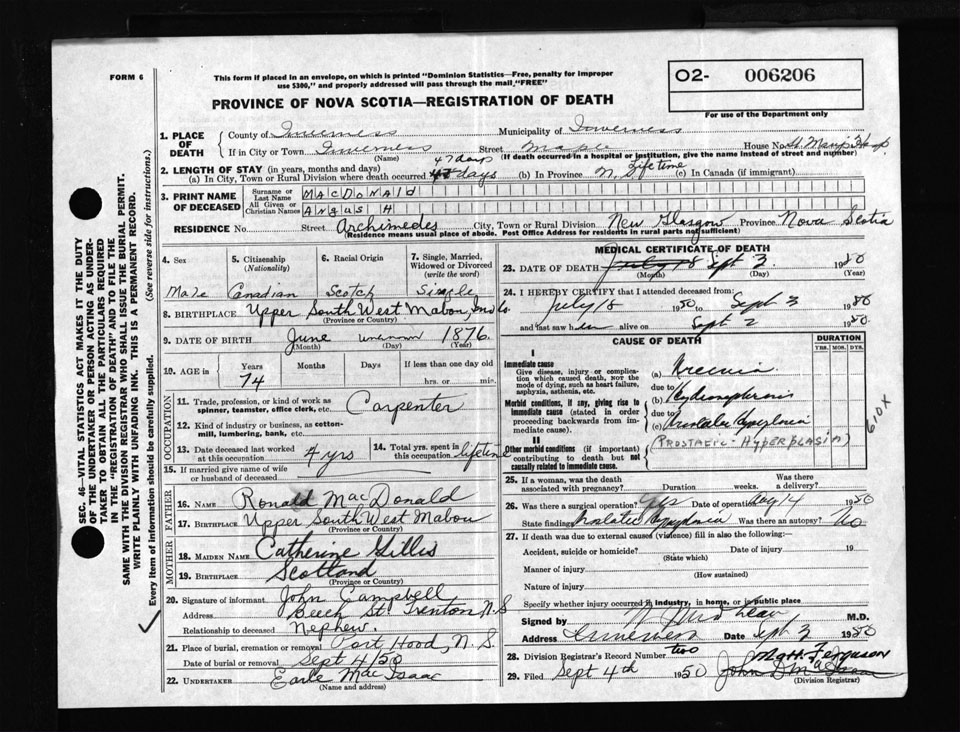 FORM 6
This form if placed in an envelope, on which is printed "Dominion Statistics—Free, penalty for improper
use $300," and properly addressed will pass through the mail, "FREE"
O2- 006206
For use of the Department only
PROVINCE OF NOVA SCOTIA—REGISTRATION OF DEATH
SEC. 46—VITAL STATISTICS ACT MAKES IT THE DUTY
OF THE UNDERTAKER OR PERSON ACTING AS UNDER-
TAKER TO OBTAIN ALL THE PARTICULARS REQUIRED
IN THE "REGISTRATION OF DEATH" AND TO FILE THE
SAME WITH THE DIVISION REGISTRAR WHO SHALL ISSUE THE BURIAL PERMIT.
WRITE PLAINLY WITH UNFADING INK. THIS IS A PERMANENT RECORD.
Every item of information should be carefully supplied. (See reverse side for instructions.)
1. PLACE OF DEATH
County of Inverness Municipality of Inverness
If in City or Town Inverness Street Maple House No. St. Marys Hosp
(Name) (If death occurred in a hospital or institution, give the name instead of street and number)
47 days
2. LENGTH OF STAY (in years, months and days)
(a) In City, Town or Rural Division where death occurred 47 days (b) In Province Lifetime (c) In Canada (if immigrant)
3. PRINT NAME OF DECEASED
Surname or Last Name MACDONALD
All Given or Christian Names ANGUS H
RESIDENCE No. Street Archimedes City, Town or Rural Division New Glasgow Province Nova Scotia
(Residence means usual place of abode. Post Office Address for residents in rural parts not sufficient)
4. Sex 5. Citizenship (Nationality) 6. Racial Origin 7. Single, Married, Widowed or Divorced (write the word)
Male Canadian Scotch Single
8. BIRTHPLACE Upper South West Mabou, Inv Co.
(Province or Country)
9. DATE OF BIRTH June unknown 1876
(Month) (Day) (Year)
10. AGE in Years Months Days If less than one day old
74 hrs. or min.
OCCUPATION
11. Trade, profession, or kind of work as spinner, teamster, office clerk, etc. Carpenter
12. Kind of industry or business, as cotton-mill, lumbering, bank, etc.
13. Date deceased last worked at this occupation 4 yrs 14. Total yrs. spent in this occupation lifetime
15. If married give name of wife or husband of deceased
FATHER
16. NAME Ronald MacDonald
17. BIRTHPLACE Upper South West Mabou
(Province or Country)
MOTHER
18. MAIDEN NAME Catherine Gillis
19. BIRTHPLACE Scotland
(Province or Country)
20. Signature of informant John Campbell
Address Beech St. Trenton, N.S
Relationship to deceased Nephew.
21. Place of burial, cremation or removal Port Hood, N.S.
Date of burial or removal Sept 4/50
22. UNDERTAKER Earle MacIsaac
(Name and address)
MEDICAL CERTIFICATE OF DEATH
23. DATE OF DEATH July 18 Sept 3 1950
(Month) (Day) (Year)
24. I HEREBY CERTIFY that I attended deceased from:
July 18 1950 to Sept 3 1950
and last saw him alive on Sept 2 1950
CAUSE OF DEATH
DURATION
YRS. MOS. DYS.
I
Immediate cause
Give disease, injury or complication which caused death, NOT the mode of dying, such as heart failure, asphyxia, asthenia, etc.
(a) Uremia
due to
Morbid conditions, if any, giving rise to immediate cause (stated in order proceeding backwards from immediate cause).
(b) Hydronephrosis
due to
(c) Prostatic Hyperplasia
(PROSTATIC-HYPERPLASIA)
610X
II
Other morbid conditions (if important) contributing to death but not causally related to immediate cause.
25. If a woman, was the death associated with pregnancy? Duration weeks. Was there a delivery?
26. Was there a surgical operation? Yes Date of operation Aug 14 1950
State findings Prostatic Hyperplasia Was there an autopsy? No
27. If death was due to external causes (violence) fill in also the following:—
Accident, suicide or homicide? Date of injury 19
(State which)
Manner of injury
(How sustained)
Nature of injury
Specify whether injury occurred in industry, in home, or in public place
Signed by M.D.
Address Inverness Date Sept 3 1950
28. Division Registrar's Record Number two
29. Filed Sept 4th 1950 Ferguson
John D MacIsaac
(Division Registrar)